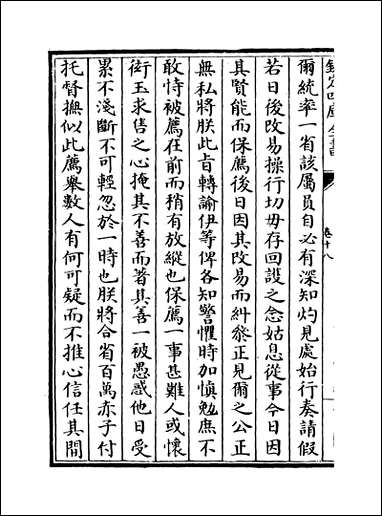 欽定四庫全書
卷十八
爾統率一省該屬員自必有深知灼見處始行奏請假
若日後改易操行切毋存回護之念姑息從事今日因
其賢能而保薦後日因其改易而糾參正見爾之公正
無私將朕此旨轉諭伊等俾各知警懼時加慎勉庶不
敢恃被薦在前而稍有放縱也保薦一事甚難人或懷
衒玉求售之心掩其不善而著其善一被愚惑他日受
累不淺斷不可輕忽於一時也朕將合省百萬赤子付
托督撫似此薦舉數人有何可疑而不推心信任其間